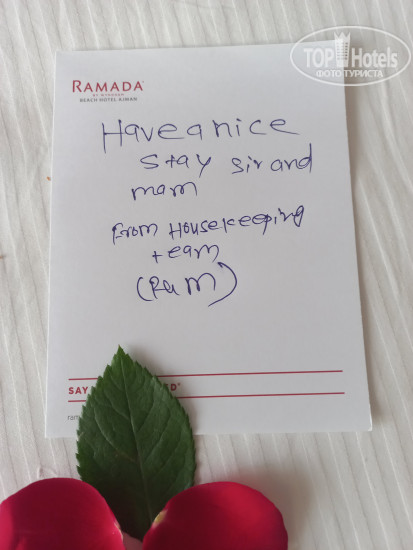 TOP Hotels
ФОТО ТУРИСТА
RAMADA
BY WYNDHAM
BEACH HOTEL AJMAN
Have a nice
stay sir and
mam
From Housekeeping
team
(Ram)
SAY